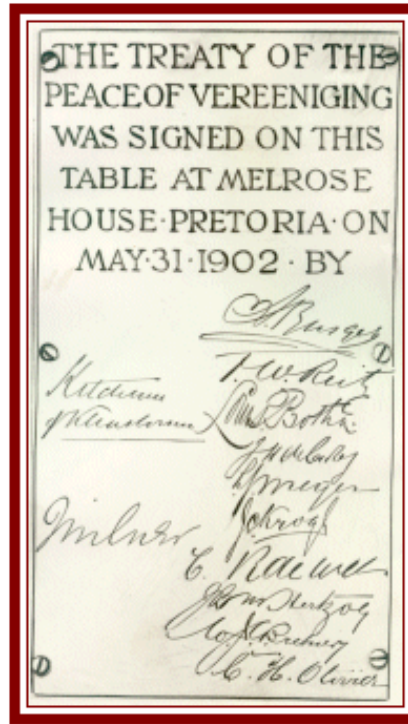 THE TREATY OF THE
PEACE OF VEREENIGING
WAS SIGNED ON THIS
TABLE AT MELROSE
HOUSE·PRETORIA·ON
MAY·31·1902·BY
S W Burger
F. W. Reitz
Kitchener
of Khartoum
Louis Botha
L J Meyer
J C Krogh
Milner
C. R de Wet
J B M Hertzog
C. H. Olivier